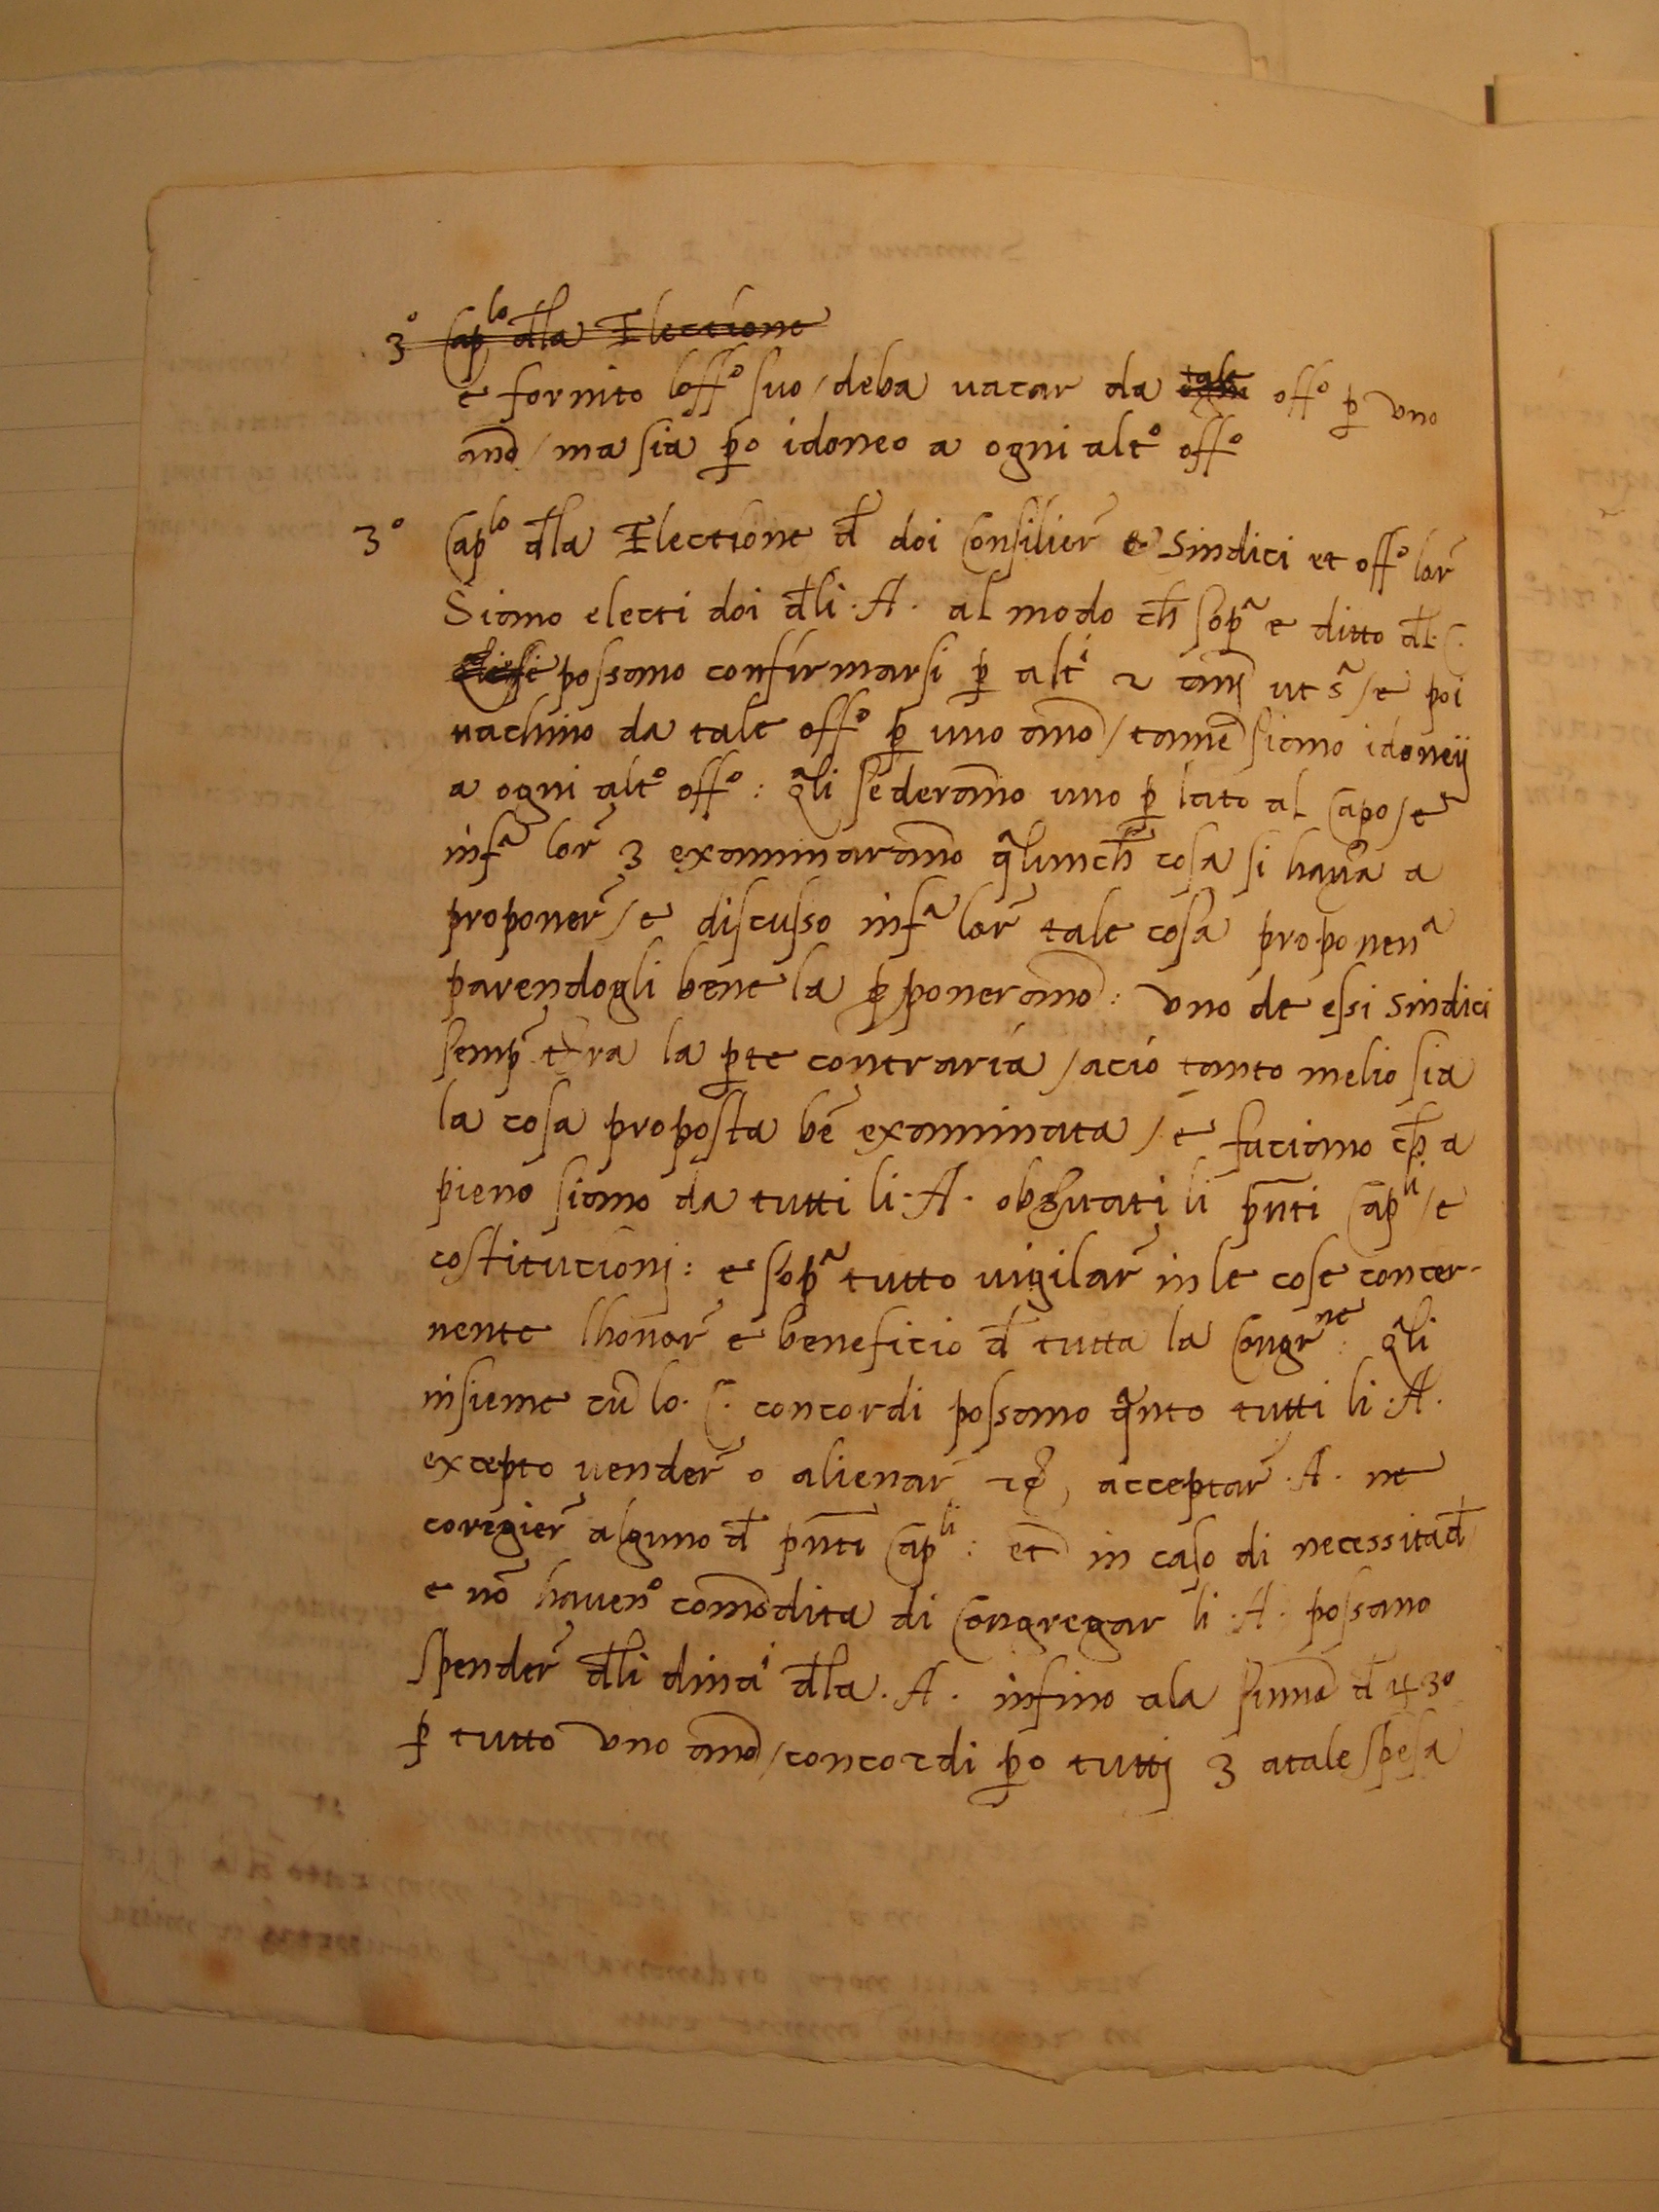 3° Cap^lo d̄la Electione
e fornito loff° suo / deba vacar da tale off° p̱ uno
ano̅ / ma sia p̱o idoneo a ogni alt° off°
3° Cap^lo d̄la Electione d̄ doi Consilier̃ e Sindici et off° lor̃
Siano electi doi d̄li .A. al modo ch̄ sop^a e ditto d̄l .C.
possano confirmarsi p̱ alt^i 2 anj ut s̃ / e poi
vachino da tale off° p̱ uno ano̅ / tame̅ siano idoneij
a ogni alt° off° : q̃li sederano̅ uno p̱ lato al Capo / e
inf^a lor̃ 3 examinarano̅ q̃lunch̄ cosa si hav̄a a
proponer̃ / e discusso inf^a lor̃ tale cosa proponen^a
parendogli bene la p̱poneranno : uno de essi Sindici
semp̱ t̄ra la p̱te contraria / acio tanto melio sia
la cosa proposta be̅ examinata / e faciano ch̄ a
pieno siano da tutti li .A. obs̄vati li pn̄ti Cap^li / e
costitucionj : e sop^a tutto vigilar̃ in le cose concer-
nente lhonor̃ e beneficio d̄ tutta la Congr^ne : q̃li
insieme cu̅ lo .C. concordi possano q̃nto tutti li .A.
excepto vender̃ o alienar̃ , acceptar̃ .A. ne
coregier̃ alguno d̄ pn̄ti Cap^li : et̄ in caso di necessitad̄
e no̅ haven° como̅dita di Congregar li .A. possano
spender̃ d̄li dina^i d̄la .A. infino ala summa d̄ 30
p̱ tutto uno ano̅ / concordi p̱o tuttj 3 a tale spesa